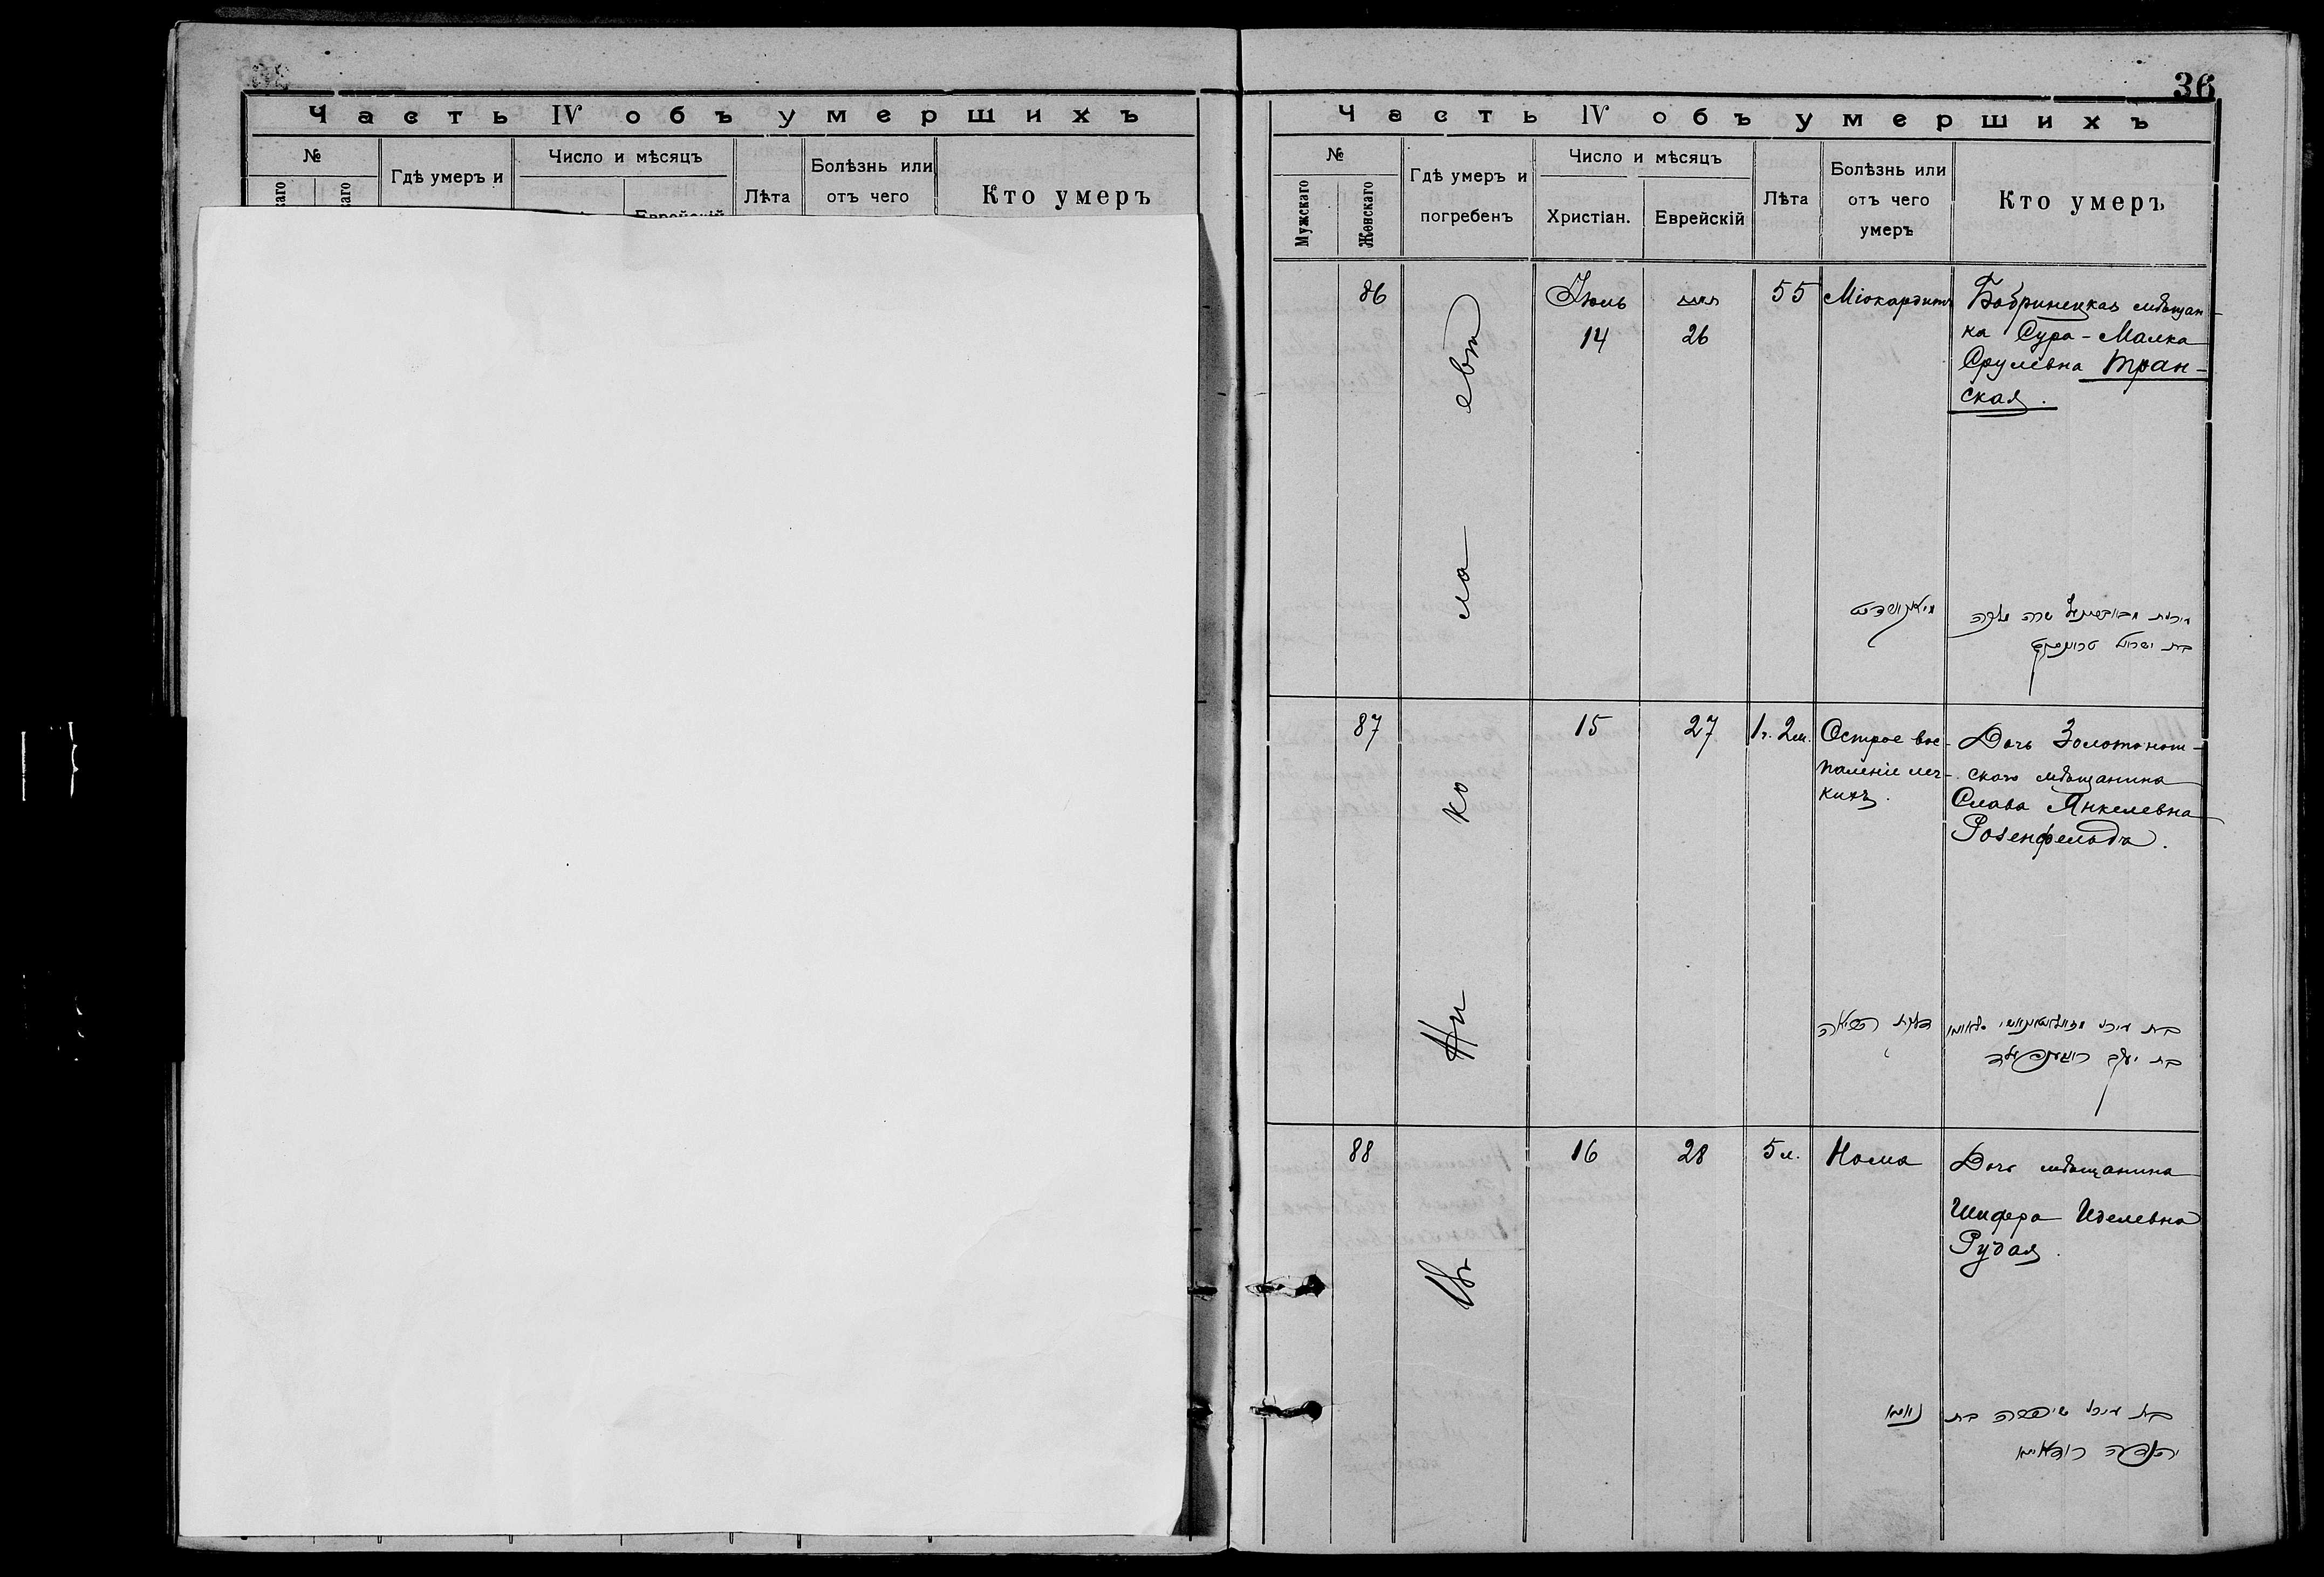 36
Часть IV объ умершихъ
№
Гдѣ умеръ и
Число и мѣсяцъ
Лѣта
Болѣзнь или
отъ чего
Кто умеръ
Часть IV объ умершихъ
№
Мужскаго
Женскаго
Гдѣ умеръ и
погребенъ
Число и мѣсяцъ
Христіан.
Еврейскій
Лѣта
Болѣзнь или
отъ чего
умеръ
Кто умеръ
Въ Ни ко ла евѣ
86
Іюль
14
26
55
Міокардитъ
Бобринецкая мѣщан-
ка Сура-Малка
Срулевна Тран-
ская.
87
15
27
1г. 2м.
Острое вос-
паленіе лег-
кихъ.
Дочь Золотонош-
скаго мѣщанина
Слава Янкелевна
Розенфельдъ.
בת יעקב רוזענפעלד
88
16
28
5 м.
Нома
Дочь мѣщанина
Шифра Иделевна
Рудая.